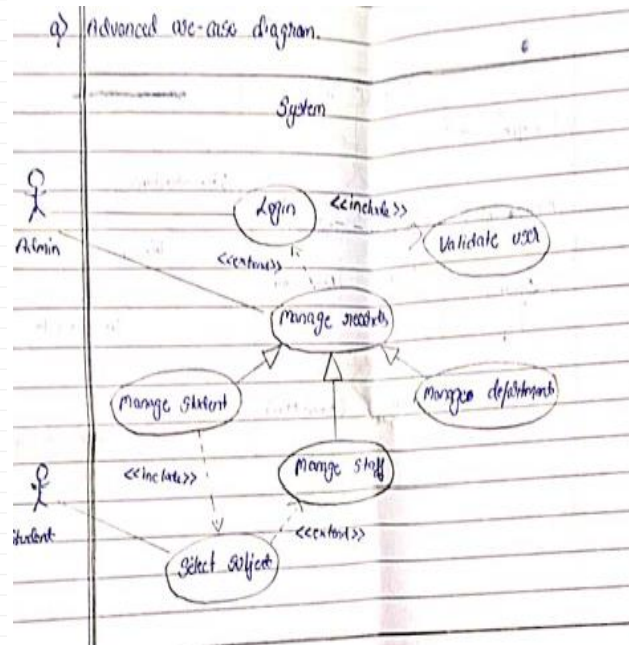 a) Advanced use-case diagram.
System
Login
<<include>>
Admin
Validate user
<<extend>>
Manage records
Manage student
Manage department
Manage staff
<<include>>
Student
<<extend>>
Select subject